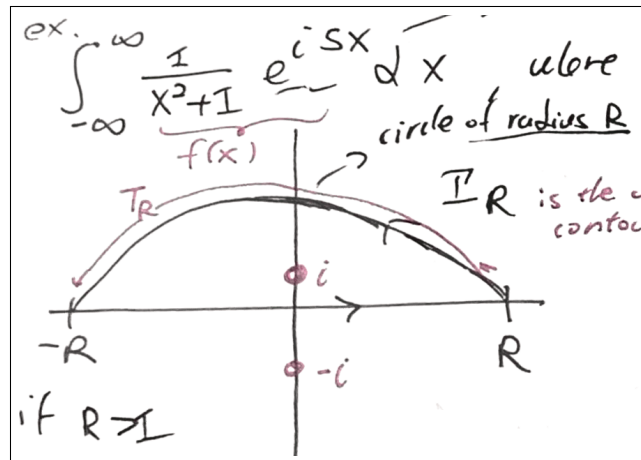 ex.
∫_{-∞}^{∞} 1/(x²+1) e^{i5x} dx where
f(x)
circle of radius R
T_R
Γ_R is the
contou
i
-R
R
-i
if R>1